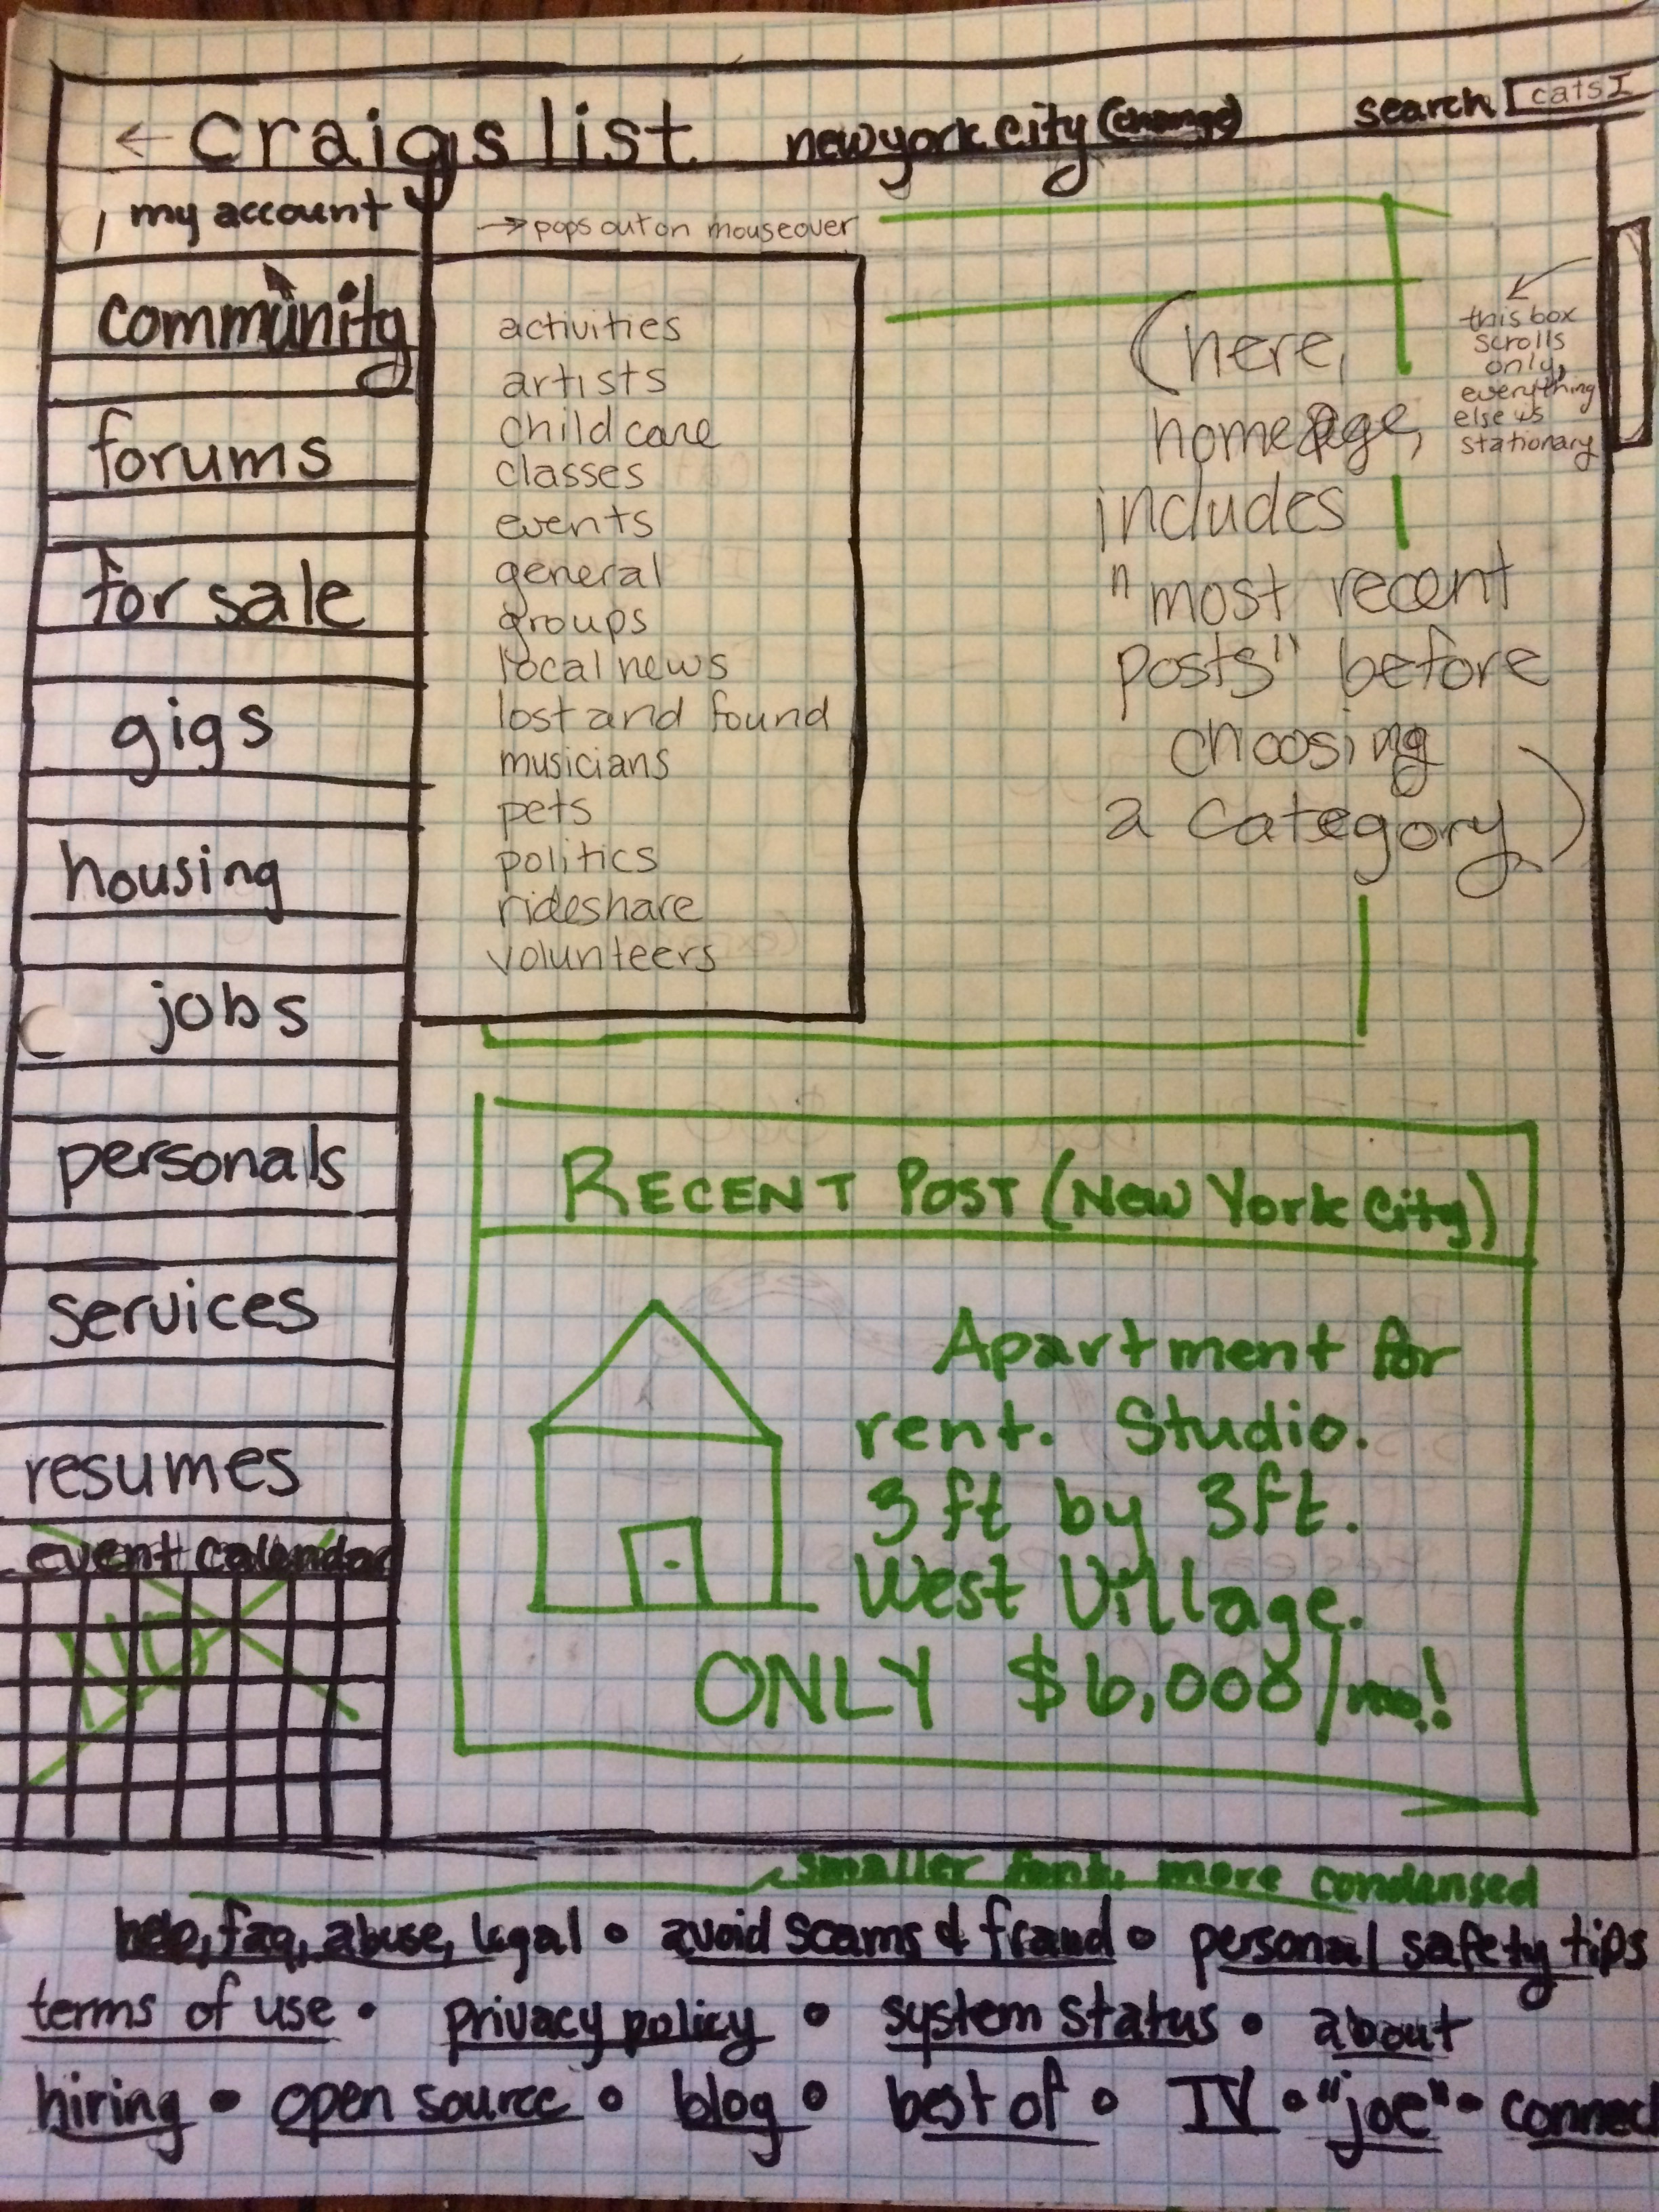 ← craigslist newyork city (change) search cats
my account
→ pops out on mouseover
community
forums
for sale
gigs
housing
jobs
personals
services
resumes
event calendar
NO
activities
artists
childcare
classes
events
general
groups
local news
lost and found
musicians
pets
politics
rideshare
volunteers
(here,
homepage,
includes
"most recent
posts" before
choosing
a category)
this box
scrolls
only,
everything
else is
stationary
RECENT POST (NEW YORK City)
Apartment for
rent. Studio.
3 ft by 3ft.
West Village.
ONLY $6,000/mo!
smaller font, more condensed
help, faq, abuse, legal • avoid scams & fraud • personal safety tips
terms of use • privacy policy • system status • about
hiring • open source • blog • best of • TV • "joe" • connect